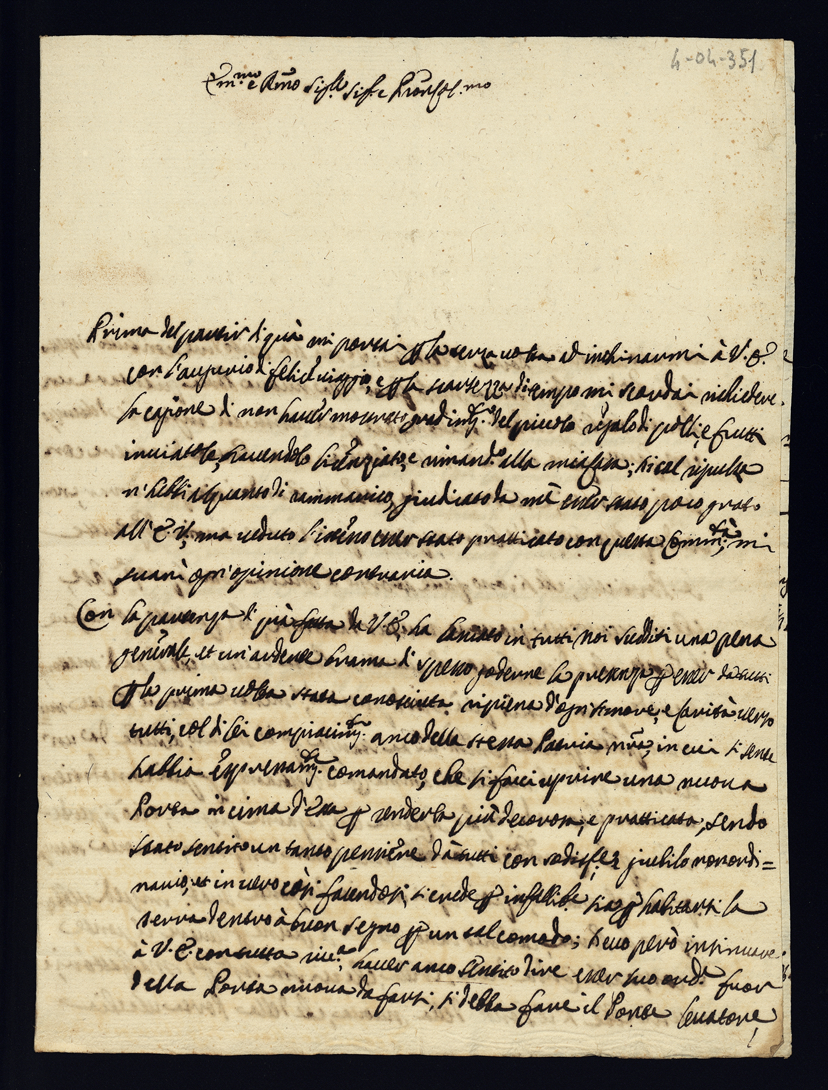 4-04-351
Em.mo e Rmo Sig.r Sig.r e Pron Col.mo
Prima del partir di quà mi portai p la terza volta ad inchinarmi à V. E.
con l'augurio di felice viaggio, e p la scarsezza di tempo mi scordai richiedere
la cagione di non haver mostrato gradim.to del piccolo regalo di polli, e frutti
inviatole, havendolo licenziato, e rimand.o alla mia casa; di cal ripulsa
n'hebbi alquanto di rammarico, giudicato da me esser stato poco grato
all'E. V., ma veduto l'istesso esser stato pratticato con questa Comm.tà, mi
svanì ogn'opinione contraria.
Con la partenza di quà fatta da V. E. ha lasciato in tutti noi sudditi una pena
generale, et un'ardente brama di spesso goderne la presenza p esser da tutti
p la prima volta stata conosciuta ripiena d'ogni amore, e Carità verso
tutti, col di lei compiacim.to anco della stessa Patria nra, in cui si sente
habbia espressam.te comandato, che si facci aprire una nuova
Porta in cima d'essa p renderla più decorosa, e pratticata, sendo
stato sentito un tanto pensiere da tutti con giubilo non ordi=
nario, et in vero così facendosi, si crede p infallibile sia p habitarsi la
terra dentro à buon segno p un tal comodo; devo però insinuare
à V. E. con tutta riv.a haver anco sentito dire esser suo ord.e fuor
della Porta nuova da farsi, si debba fare il Ponte levatore,